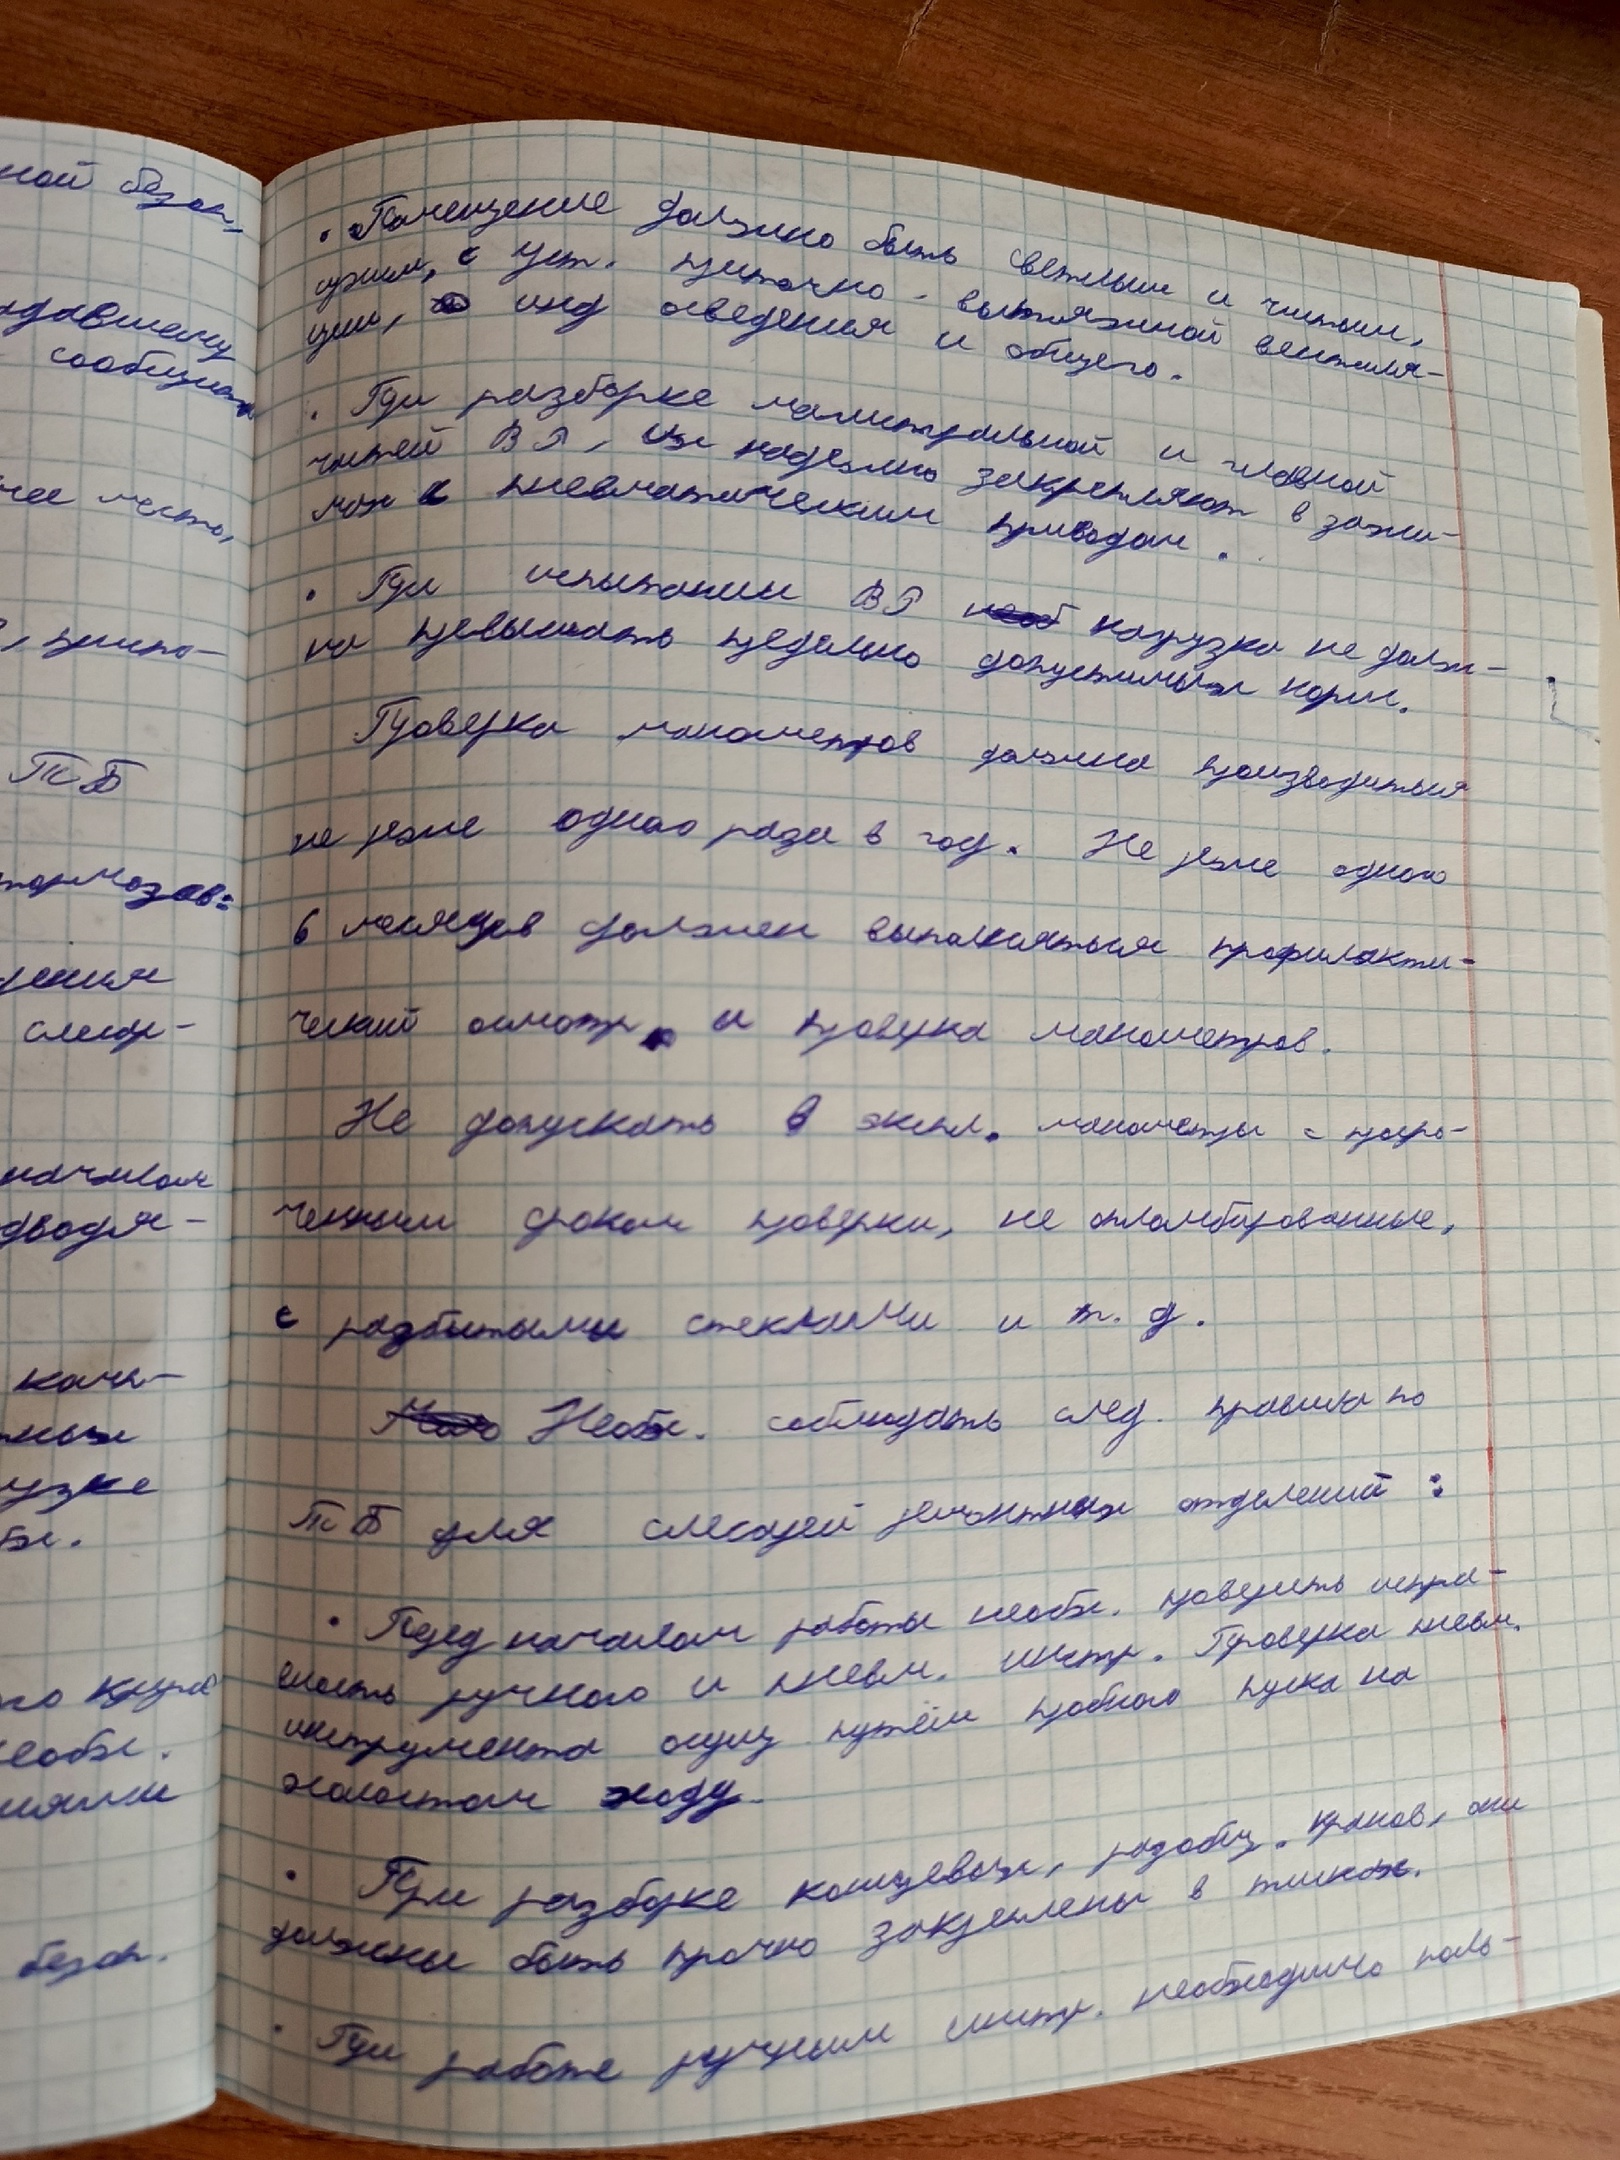 ной безоп,
адавшему
сообщить
чее место,
ТБ
тормозов:
дения
слесар-
началом
дводя-
качи-
узке
необх.
безоп.
• Помещение должно быть светлым и чистым,
сухим, с уст. приточно-вытяжной вентиля-
ции, инд освещения и общего.
• При разборке магистральной и главной
частей ВР, их надежно закрепляют в зажи-
мах с пневматическим приводом.
• При испытании ВР нагрузка не долж-
на превышать предельно допустимых норм.
Проверка манометров должна производиться
не реже одного раза в год. Не реже одного
6 месяцев должен выполняться профилакти-
ческий осмотр и проверка манометров.
Не допускать в экспл. манометры с просро-
ченным сроком проверки, не опломбированные,
с разбитыми стеклами и т. д.
Необх. соблюдать след. правила по
ТБ для слесарей ремонтных отделений:
• Перед началом работы необх. проверить испра-
вность ручного и пневм. инстр. Проверка пневм.
инструмента осущ путём пробного пуска на
холостом ходу.
• При разборке концевых, разобщ. кранов, они
должны быть прочно закреплены в тисках.
• При работе ручным инстр. необходимо поль-